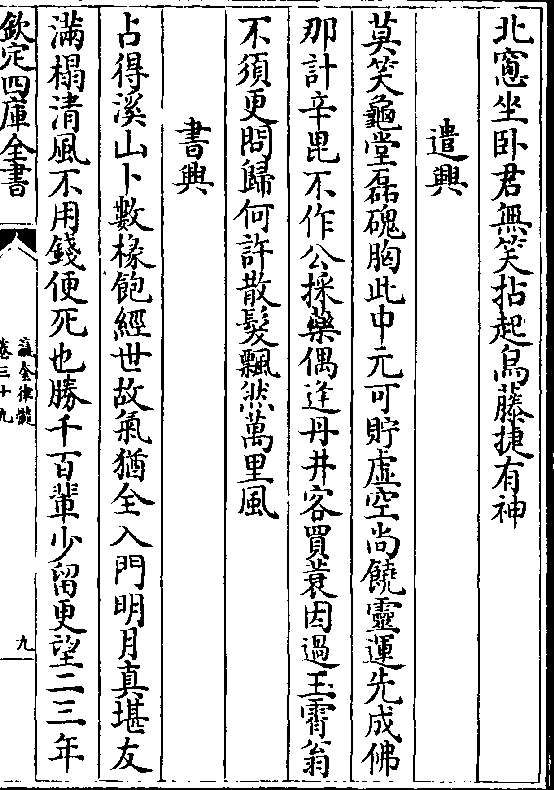 北窻坐卧君無笑拈起烏藤捷有神
遣興
莫笑龜堂磊磈胸此中元可貯虛空尚饒靈運先成佛
那計辛毘不作公採藥偶逢丹井客買蓑因過玉霄翁
不須更問歸何許散髮飄然萬里風
書興
占得溪山卜數椽飽經世故氣猶全入門明月真堪友
滿榻清風不用錢便死也勝千百輩少留更望二三年
欽定四庫全書
瀛奎律髓
卷三十九
九